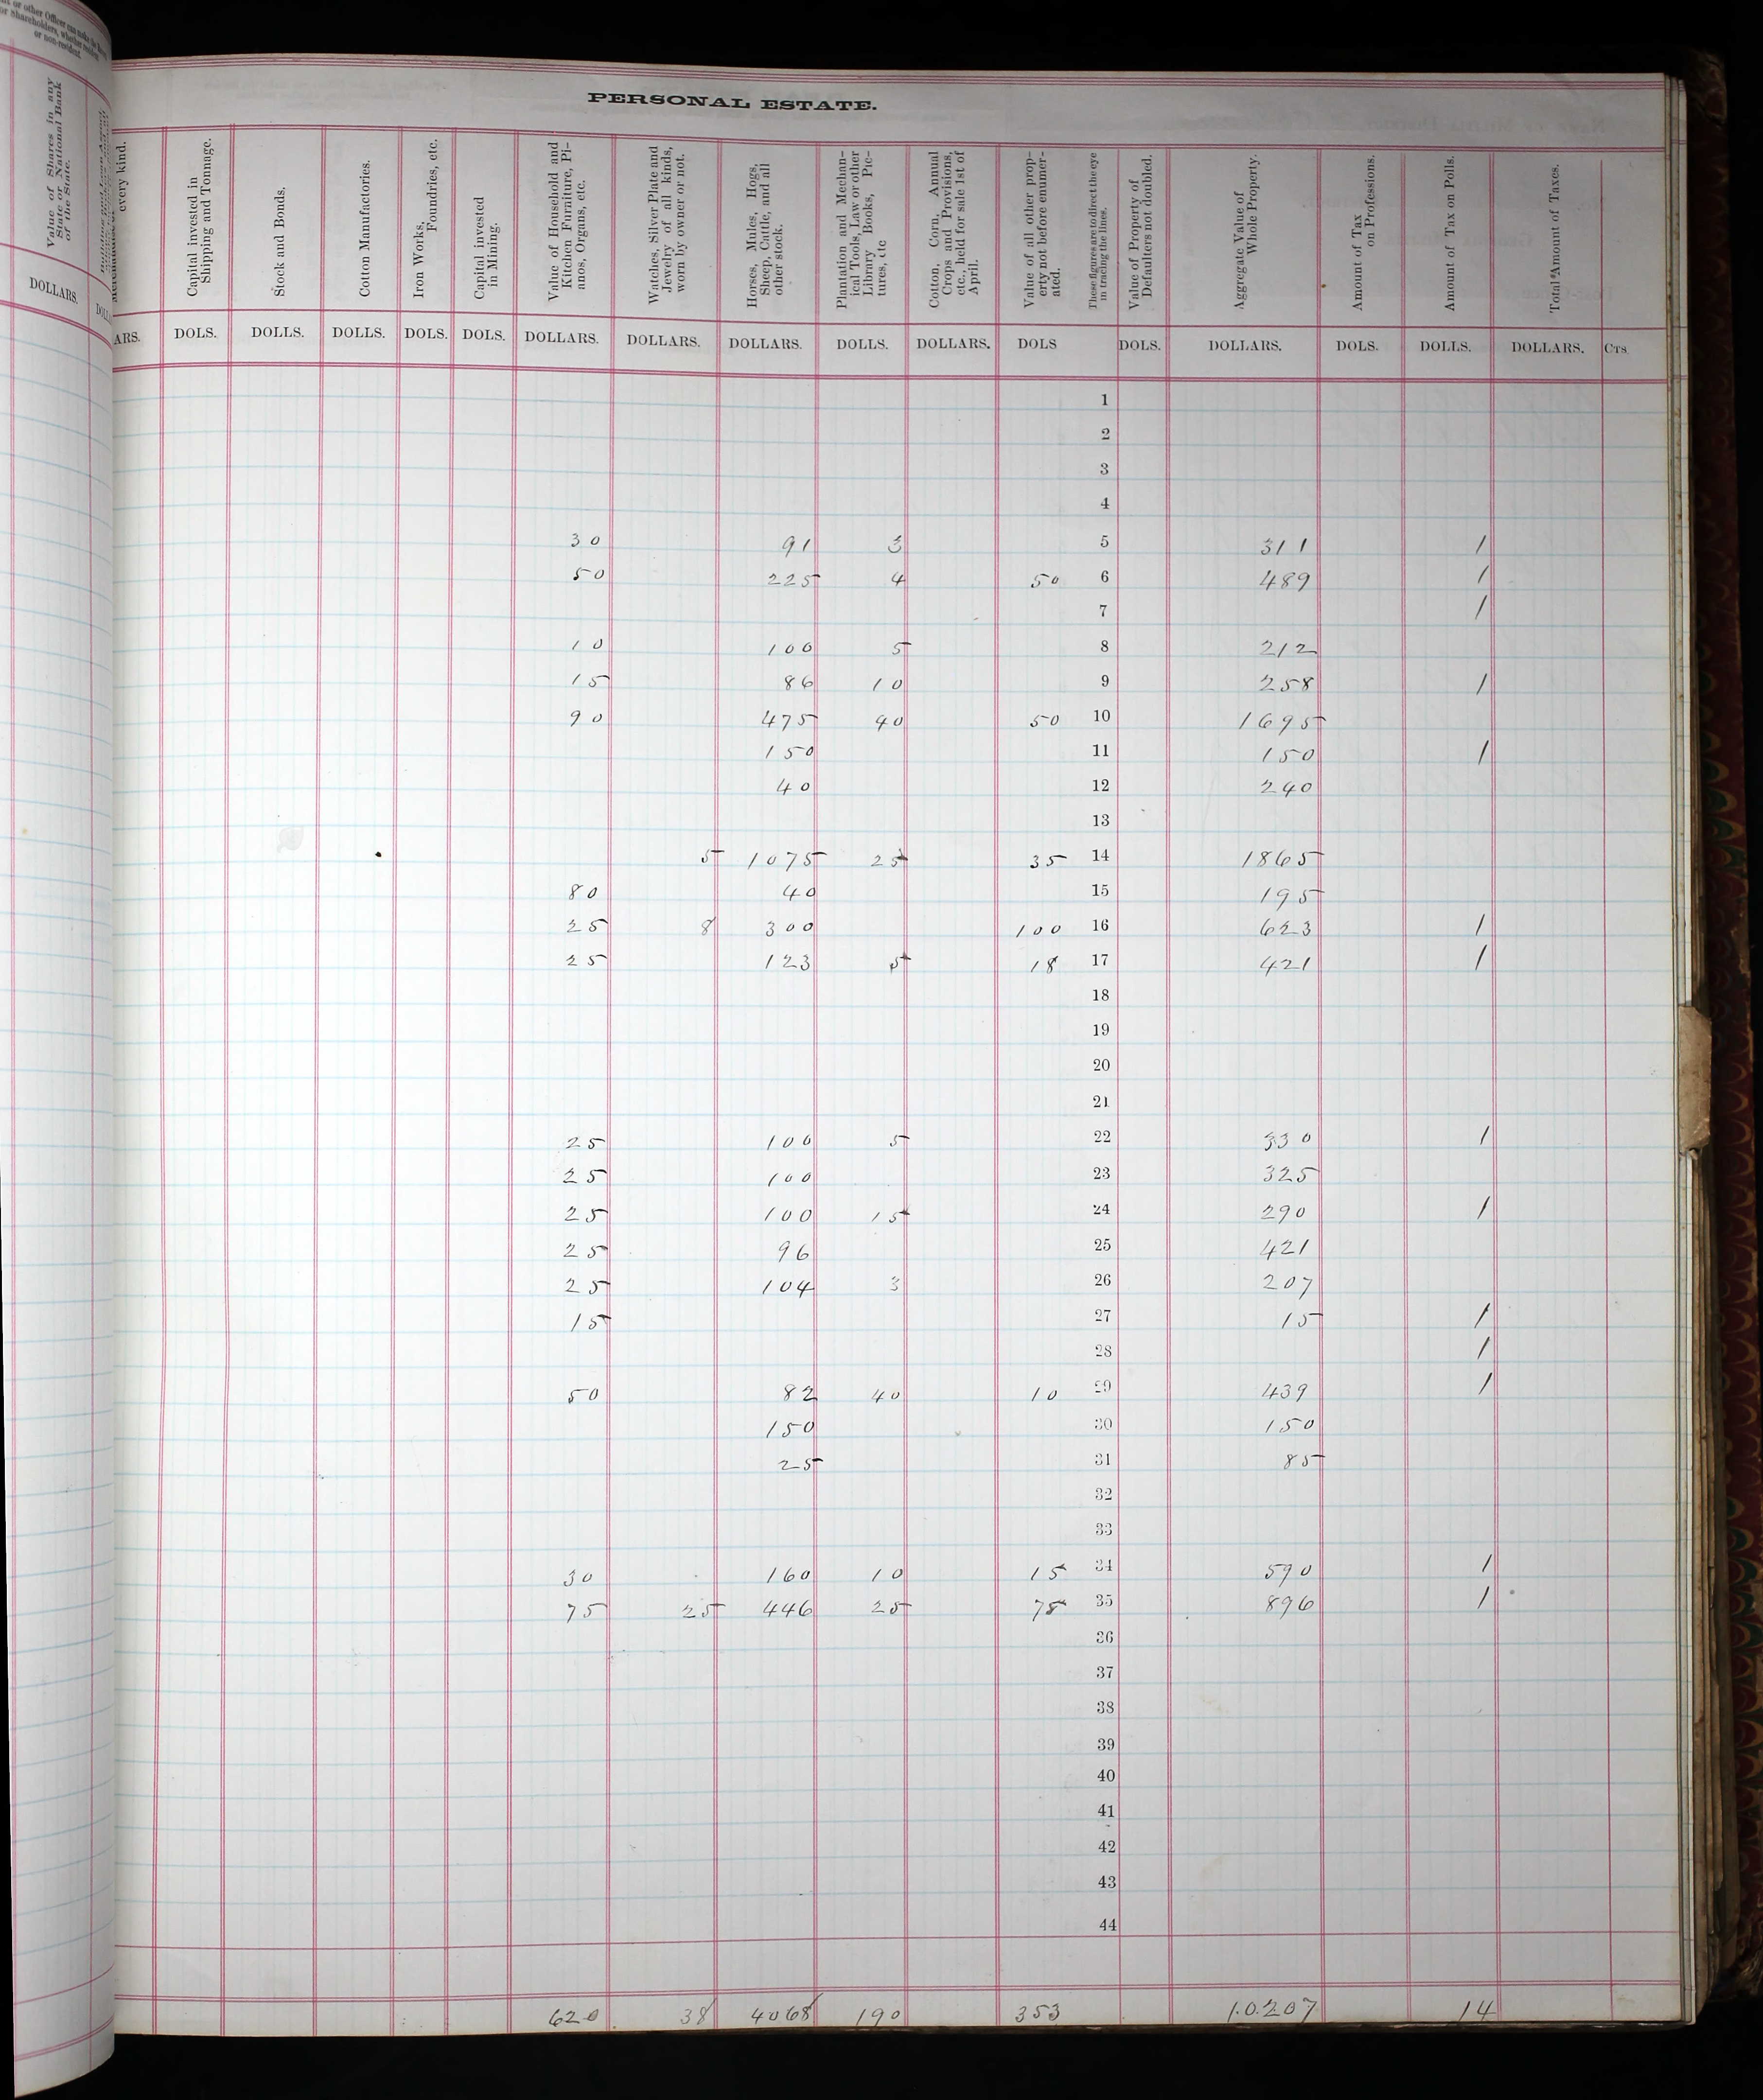 or other Officer can make the
or Shareholders, whether resident
or non-resident.
Value of Shares in any
State or National Bank
of the State.
DOLLARS.
PERSONAL ESTATE.
every kind.
Capital invested in
Shipping and Tonnage.
Stock and Bonds.
Cotton Manufactories.
Iron Works,
Foundries, etc.
Capital invested
in Mining.
Value of Household and
Kitchen Furniture, Pi-
anos, Organs, etc.
Watches, Silver Plate and
Jewelry of all kinds,
worn by owner or not.
Horses, Mules, Hogs,
Sheep, Cattle, and all
other stock.
Plantation and Mechan-
ical Tools, Law or other
Library Books, Pic-
tures, etc
Cotton, Corn, Annual
Crops and Provisions,
etc., held for sale 1st of
April.
Value of all other prop-
erty not before enumer-
ated.
These figures are to direct the eye
in tracing the lines.
Value of Property of
Defaulters not doubled.
Aggregate Value of
Whole Property.
Amount of Tax
on Professions.
Amount of Tax on Polls.
Total Amount of Taxes.
ARS. DOLS. DOLLS. DOLLS. DOLS. DOLS. DOLLARS. DOLLARS. DOLLARS. DOLLS. DOLLARS. DOLS DOLS. DOLLARS. DOLS. DOLLS. DOLLARS. CTS
1
2
3
4
30 91 3 5 311 1
50 225 4 50 6 489 1
7 1
10 100 5 8 212
15 86 10 9 258 1
90 475 90 50 10 1695
150 11 150 1
40 12 240
13
5 1075 25 35 14 1865
80 40 15 195
25 8 300 100 16 623 1
25 123 5 18 17 421 1
18
19
20
21
25 100 5 22 330 1
25 100 23 325
25 100 15 24 290 1
25 96 25 421
25 104 3 26 207
15 27 15 1
28 1
50 82 40 10 29 439 1
150 30 150
25 31 85
32
33
30 160 10 15 34 590 1
75 25 446 25 75 35 896 1
36
37
38
39
40
41
42
43
44
620 38 4068 190 353 10.207 14